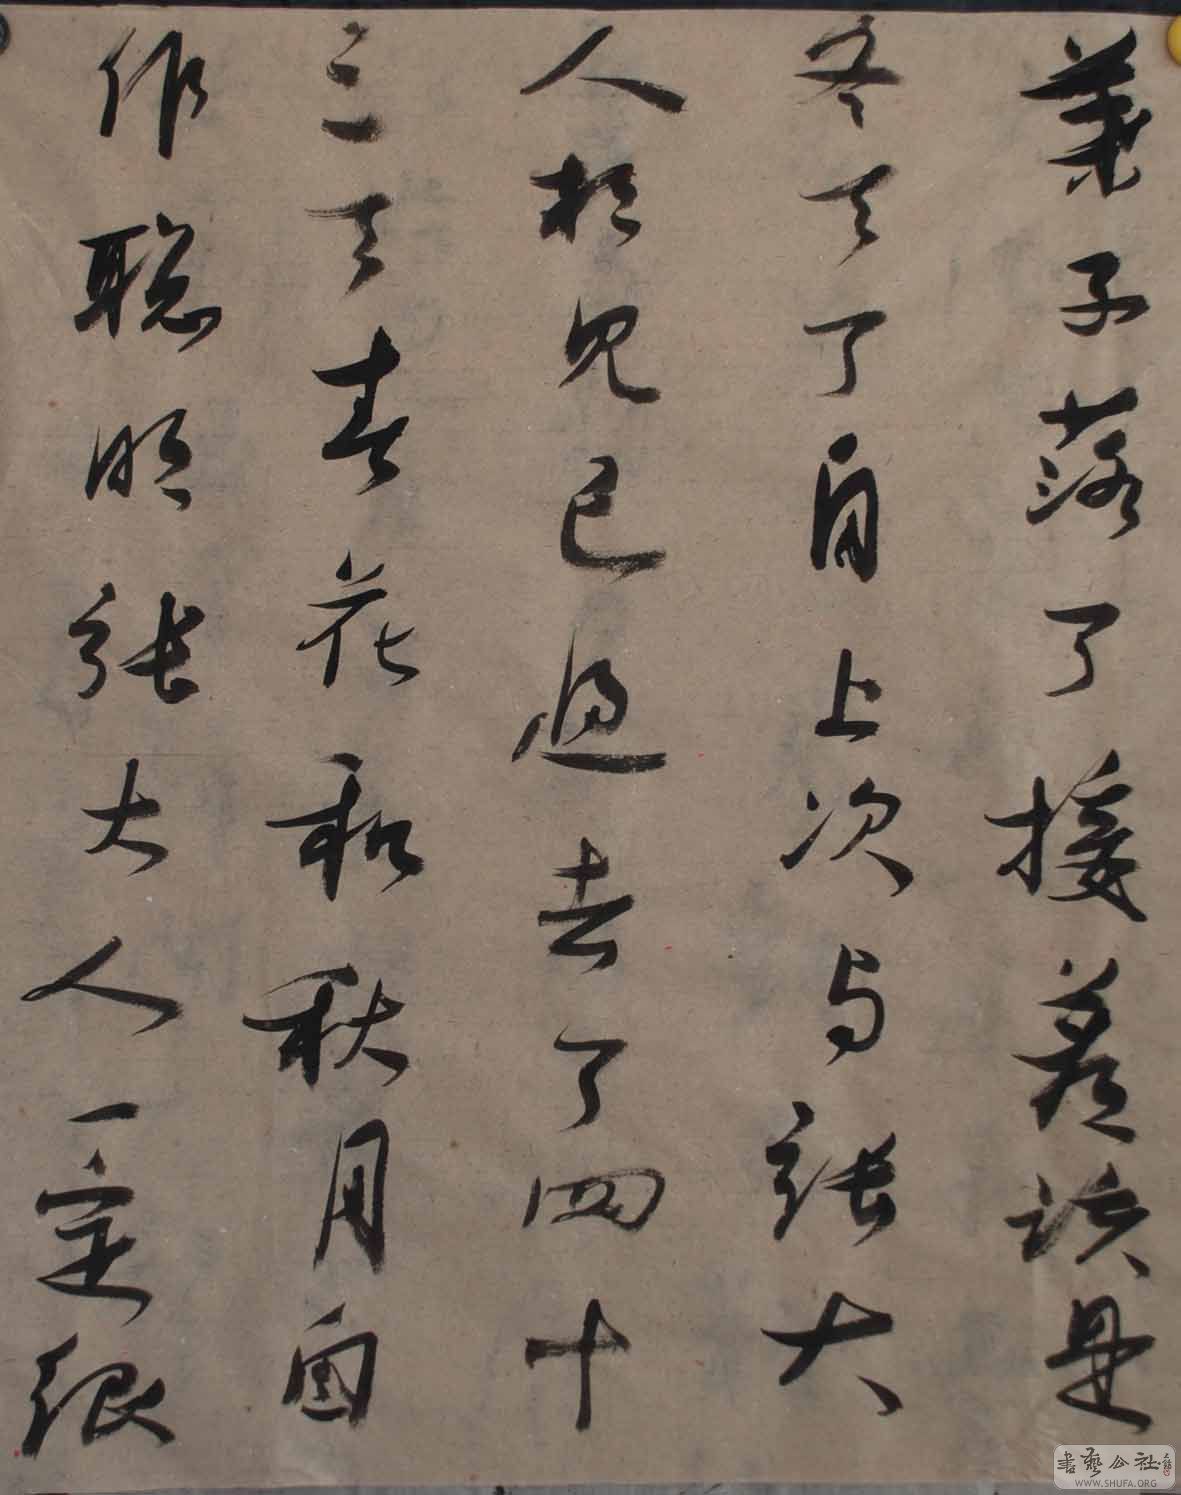 葉子落了接著該是
冬天了自上次與張大
人相見已過去了四十
三天春花和秋月自
作聰明張大人一定很
書藝公社
WWW.SHUFA.ORG